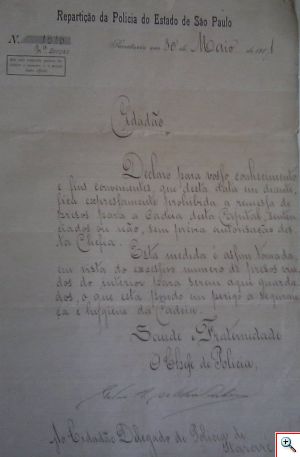 Repartição da Policia do Estado de São Paulo
N. 1010
Secretaria em 30 de Maio de 1891
Cidadão
Declaro para vosso conhecimento
e fins convenientes, que desta data em diante,
fica expressamente prohibida a remessa de
presos para a Cadeia desta Capital, senten-
ciados ou não, sem prévia autorisação des-
ta Chefia.
Esta medida é assim tomada,
em vista do excessivo numero de presos vin-
dos do interior para serem aqui guarda-
dos, o que está pondo em perigo a seguran-
ça e hygiene da Cadeia.
Saude e Fraternidade
O Chefe de Policia,
Ao Cidadão Delegado de Policia de